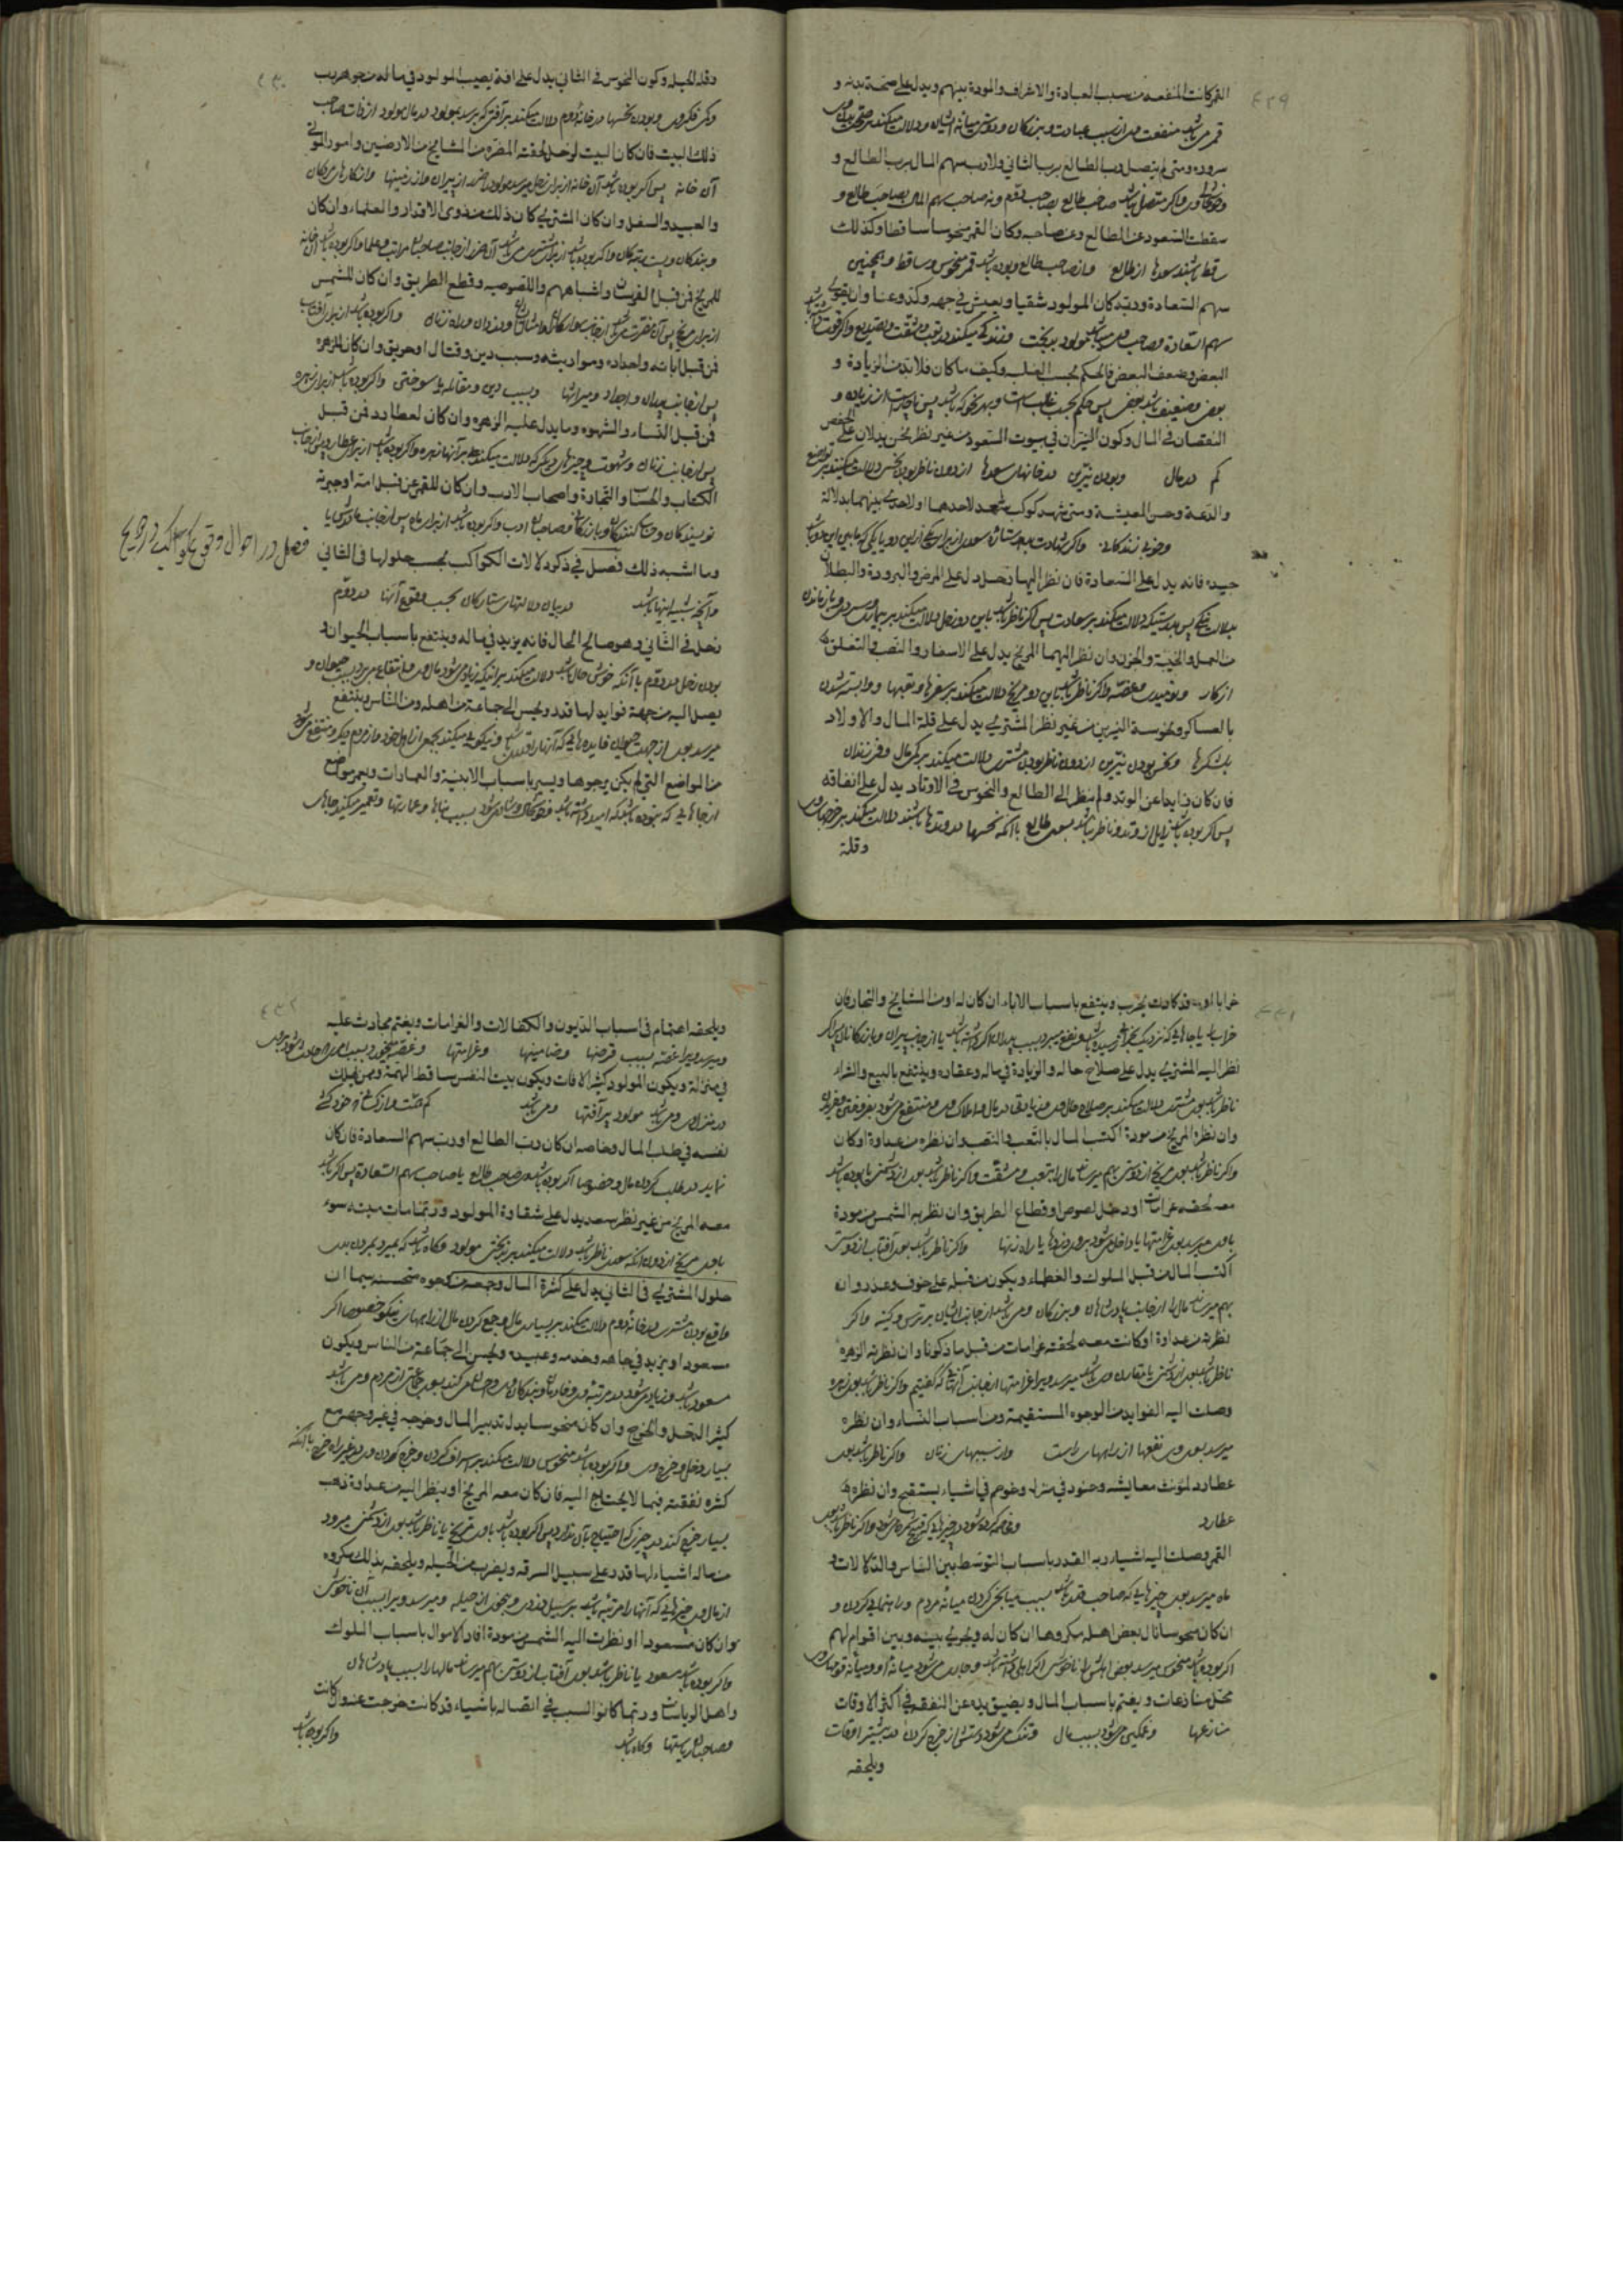 ٤٢٩
القمر كانت المنفعه من سبب العبادة والاشراف والمودة بينهم ويدل على صحة بدنه و
قمر مى باشد منفعت وى از سبب عبادت وبزركان ودوستى ميانه ايشان ودلالت ميكند بر صحت بدن وى
سروره ومتى لم يتصل رب الطالع برب الثاني ولا رب سهم المال برب الطالع و
وخوشحالى وى واكر متصل نباشد صاحب طالع بصاحب دوم ونه صاحب سهم المال بصاحب طالع و
سقطت السعود عن الطالع وعن صاحبه وكان القمر منحوسا ساقطا وكذلك
ساقط باشند سعدها از طالع واز صاحب طالع وبوده باشد قمر منحوس وساقط وهمچنين
سهم السعادة وربه كان المولود شقيا ويعيش في جهد وكد وعنا وان يقوى
سهم السعادة وصاحب وى مى باشد مولود بدبخت وزندكى ميكند در تعب ومشقت وتصديع واكر قوت داشته باشد
البعض وضعف البعض فالحكم بحسب الغلب وكيف ما كان فلا بد من الزيادة و
بعضى وضعيف باشد بعضى پس حكم بحسب غلبه است وبهر نحو كه باشد پس ناچار است از زياده و
النقصان في المال وكون النيران في بيوت السعود من غير نظر نحس يدلان على الخفض
كم در مال وبودن نيرين در خانهاى سعدها از دون ناظر بودن نحس دلالت ميكنند بر توسع
والدعة وحسن المعيشة ومتى شهد كوكب سعد لاحدهما او لاحدى بينهما بدلالة
وخوبى زندكانى واكر شهادت بدهد ستاره سعدى از براى يكى از اين دو يا يكى
جيدة فانه يدل على السعادة فان نظر اليهما زحل دل على المرض والبرودة والبطلان
بدلالت نيكى پس بدرستيكه دلالت ميكند بر سعادت پس اكر ناظر باشد باين دو زحل دلالت ميكند بر بيمارى وسردى وبازماندن
من العمل والخيبة والحزن وان نظر اليهما المريخ يدل على الاسفار والنصب والتعلق
از كار ونوميدى وغصه واكر ناظر باشد باين دو مريخ دلالت ميكند بر سفرها وتعبها ووابسته شدن
بالعساكر ومنحوسة النيرين من غير نظر المشترى يدل على قلة المال والاولاد
بلشكرها ونحس بودن نيرين از دون ناظر بودن مشترى دلالت ميكند بر كمى مال وفرزندان
فان كان زايلا عن الوتد ولم ينظر الى الطالع والنحوس في الاوتاد يدل على انفاقه
پس اكر بوده باشد زايل از وتد وناظر نباشد بسوى طالع با آنكه نحسها در وتدها باشند دلالت ميكند بر خرجهاى وى
وقلة
٤٣٠
وقلة الحيلة وكون النحوس في الثاني يدل على آفة يصيب المولود في ماله من جوهر رب
وكمى فكر وى وبودن نحسها در خانه دوم دلالت ميكند بر آفتى كه برسد بمولود در مال مولود از ذات صاحب
ذلك البيت فان كان البيت لزحل لحقته المضره من المشايخ من الارضين وامور الموتى
آن خانه پس اكر بوده باشد آن خانه از براى زحل ميرسد مولود را ضرر از پيران واز زمينها واز كارهاى مردكان
والعبيد والسفل وان كان المشترى كان ذلك من ذوى الاقدار والعلماء وان كان
وبندكان وپست مرتبكان واكر بوده باشد از براى مشترى مى باشد آن ضرر از جانب صاحبان مراتب وعلما واكر بوده باشد آن خانه
للمريخ فمن قبل الفرسان واشباههم واللصوصيه وقطع الطريق وان كان للشمس
از براى مريخ پس آن مضرت مى باشد از جانب سواركان وامثال ايشان ودزدان وراه زنان واكر بوده باشد از براى آفتاب
فمن قبل ابائه واجداده ومواريثه وسبب دين وقتال او حريق وان كان للزهره
پس از جانب پدران واجداد وميراثها وبسبب دين ومقاتله يا سوختى واكر بوده باشد از براى زهره
فمن قبل النساء والشهوه وما يدل عليه الزهره وان كان لعطارد فمن قبل
پس از جانب زنان وشهوت وچيزهاى ديكر كه دلالت ميكند بر آنها زهره واكر بوده باشد از براى عطارد پس از جانب
الكتاب والحساب والتجارة واصحاب الادب وان كان للقمر عن قبل امه او جيرته
نويسندكان وحساب كنندكان وبازركانى وصاحبان ادب واكر بوده باشد از براى ماه پس از جانب مادرش يا
وما اشبه ذلك فصل في ذكر دلالات الكواكب بحسب حلولها في الثاني
وآنچه شبيه اينها باشد در بيان دلالتهاى ستاركان بحسب وقوع آنها در دوم
زحل في الثاني وهو صالح الحال فانه يزيد في ماله وينتفع باسباب الحيوان و
بودن زحل در دوم با آنكه خوش حال باشد دلالت ميكند بر آنكه زياد مى شود مال وى وانتفاع مى برد بسبب حيوان و
يصل اليه من جهة فوايد لها قدر ويحسن الى جماعة من اهله ومن الناس وينتفع
ميرسد بوى از جهت حيوان فايده هايى كه آنها را قدر باشد ونيكويى ميكند بجمعى از اهل خود واز مردم ديكر ومنتفع مى شود
من المواضع التي لم يكن يرجوها ويسر باسباب الابنية والعمارات ويعمر مواضع
از جاهايى كه نبوده باشد كه اميد داشته باشد وخوشحال وشاد مى شود بسبب بناها وعمارتها وتعمير ميكند جاهاى
فصل در احوال وقوع كواكب در
٤٣١
خرابا او قد كادت يخرب وينتفع باسباب الاباء ان كان له او من المشايخ والتجار فان
خراب يا جاهايى كه نزديك بخراب رسيده باشد ونفع ميبرد بسبب پدران اكر داشته باشد يا از جانب پيران وبازركانان پس اكر
نظر اليه المشترى يدل على صلاح حاله والزيادة في ماله وعقاره وينتفع بالبيع والشراء
ناظر باشد بوى مشترى دلالت ميكند بر صلاح حال وى وزيادتى در مال واملاك وى ومنتفع مى شود بفروختن وخريدن
وان نظره المريخ من مودة اكتسب المال بالتعب والنصب وان نظره من عداوة او كان
واكر ناظر باشد بوى مريخ از دوستى بهم ميرساند مال را بتعب ومشقت واكر ناظر باشد بوى از دشمنى يا بوده باشد
معه لحقته غرامات او دخل لصوص او قطاع الطريق وان نظر به الشمس من مودة
باوى ميرسد بوى غرامتها يا داخل مى شود بر وى دزدها يا راه زنها واكر ناظر باشد بوى آفتاب از دوستى
اكتسب المال من قبل الملوك والعظماء ويكون من قبله على خوف وغدر وان
بهم ميرساند مال را از جانب پادشاهان وبزركان ومى باشد از جانب ايشان بر ترس وكينه واكر
نظر به من عداوة او كانت معه لحقته غرامات من قبل ما ذكرنا وان نظر به الزهره
ناظر باشد بوى از دشمنى يا مقارن وى باشد ميرسد ويرا غرامتها از جانب آنهايى كه كفتيم واكر ناظر باشد بوى زهره
وصلت اليه الفوايد من الوجوه المستقيمة ومن اسباب النساء وان نظره
ميرسد بوى نفعها از راههاى راست واز سببهاى زنان واكر ناظر باشد بوى
عطارد
القمر وصلت اليه اشياء ربه القدر باسباب التوسط بين الناس والدلالات و
ماه ميرسد بوى چيزهايى كه صاحب قدر باشد بسبب ميانجى كردن ميانه مردم وراهنمايى كردن و
ان كان منحوسا نال بعض اهله مكروها ان كان له ويجرى بينه وبين اقوام لهم
اكر بوده باشد منحوس ميرسد بعض اهلش را ناخوشى اكر اهلى داشته باشد وجارى مى شود ميانه او وميانه قومهاى
محل منازعات ويغتم باسباب المال ويضيق يده عن النفقة في اكثر الاوقات
منازعها وغمكين مى شود بسبب مال وتنك مى شود دستش از خرج كردن در بيشتر اوقات
ويلحقه
٤٣٢
ويلحقه اهتمام في اسباب الديون والكفالات والغرامات ويغتم بحادث عليه
وميرسد ويرا غصه بسبب قرضها وضامنيها وغرامتها وغصه ميخورد بسبب امرى
في منزله ويكون المولود كثير الافات ويكون ميت النفس ساقط الهمة
در منزل وى ومى باشد مولود پر آفتها ومى باشد
نفسه في طلب المال وخاصه ان كان رب الطالع او رب سهم السعادة فان كان
نمايد در طلب كردن مال وخصوصا اكر بوده باشد وى صاحب طالع يا صاحب سهم السعادة پس اكر باشد
معه المريخ من غير نظر سعد يدل على شقاوة المولود وربما مات ميتة سوء
باوى مريخ از دون آنكه سعدى ناظر باشد دلالت ميكند بر بدبختى مولود وكاه باشد كه بميرد بمردن بدى
حلول المشترى في الثاني يدل على كثرة المال وجمعه من وجوه مستحسنه سيما ان
واقع بودن مشترى در خانه دوم دلالت ميكند بر بسيارى مال وجمع كردن مال از راههاى نيكو خصوصا اكر
مسعودا ويزيد في جاهه وخدمه وعبيده ويحسن الى جماعة من الناس ويكون
مسعود باشد وزياد مى شود در مرتبه وى وخادمان وبندكان وى واحسان ميكند بسوى جماعتى از مردم ومى باشد
كثير الدخل والخرج وان كان منحوسا يدل تبذير المال وخرجه في غير وجهه مع
بسيار دخل وخرج وى واكر بوده باشد منحوس دلالت ميكند بر اسراف كردن وخرج كردن وى در غير راه خرج با آنكه
كثرة نفقته فيما لا يحتاج اليه فان كان معه المريخ او ينظر اليه من عداوة ذهب
بسيار خرج كند در چيزى كه احتياج بآن ندارد پس اكر بوده باشد باوى مريخ يا ناظر باشد بوى از دشمنى ميرود
من ماله اشياء لها قدر على سبيل السرقه ويضرب من الحيله ويلحقه بذلك مكروه
از مال وى چيزهايى كه آنها را مرتبه باشد بر سبيل دزدى وبنحوى از حيله وميرسد ويرا بسبب آن ناخوشى
وان كان مسعودا او نظرت اليه الشمس من مودة افاد الاموال باسباب الملوك
واكر بوده باشد مسعود يا ناظر باشد بوى آفتاب از دوستى بهم ميرساند مالها را بسبب پادشاهان
واهل الرياسات وربما كانوا السبب في اتصاله باشياء قد كانت خرجت عنه وان كانت
وصاحبان رياستها وكاه باشد
واكر بوده باشد